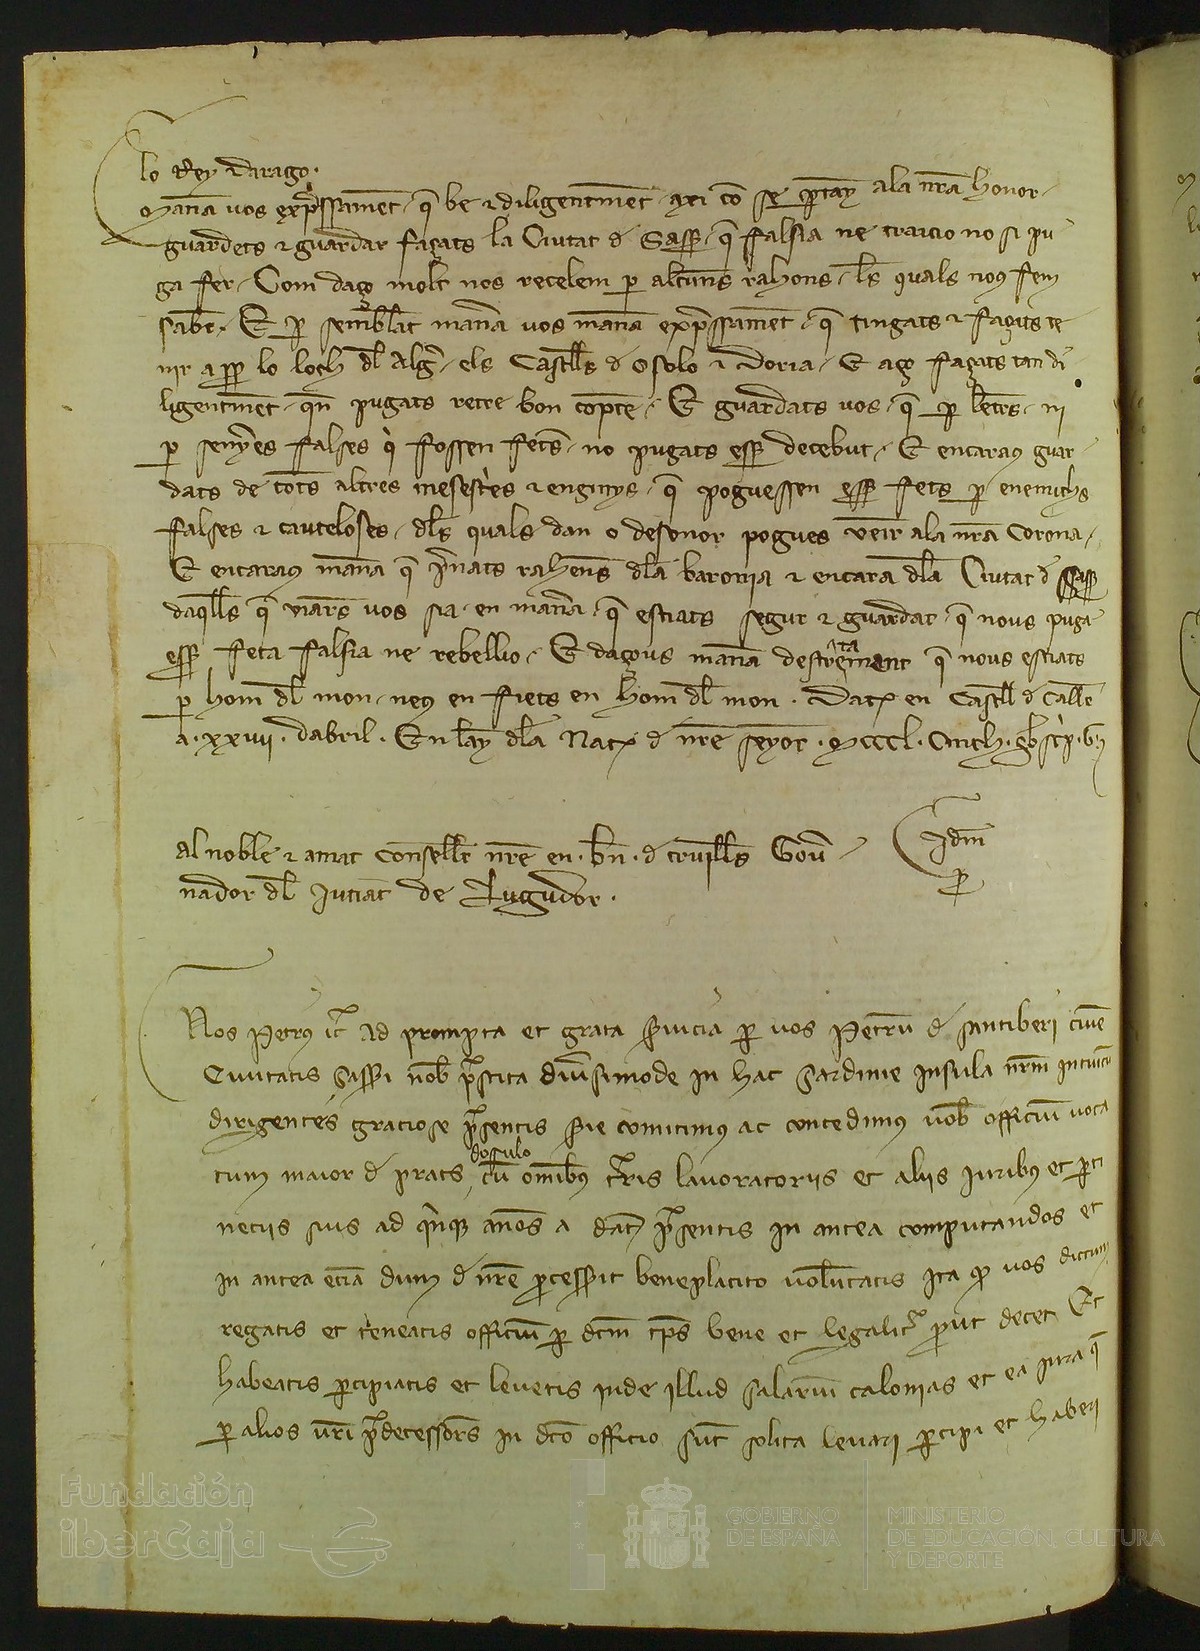 lo Rey Darago.
Mana vos exp̃ssament q̃ be ⁊ diligentment axi cõ se p̱tay ala nr̃a honor
guardets ⁊ guardar façats la Ciutat d̃ Sass̃ q̃ falsia ne traicio no si pu
ga fer Com daço molt nos recelem p̱ alcunes rahons les quals nous fem
saber Et p̱ semblãt mana vos mana exp̃ssament q̃ tingats ⁊ façats te
nir a p̱p̱ lo loch dl̃ Alg̃ els Castells d̃ Osolo ⁊ Doria E aço façats tan di
ligentment qñ pugats retre bon compte E guardats vos q̃ p̱ letr̃s ni
p̱ senyes falses q̃ fossen fets no pugats ess̃ decebut E encaraus guar
dats de tots altres ⁊ enginys q̃ poguessen ess̃ fets p̱ enemichs
falses ⁊ cauteloses dl̃s quals dan o desonor pogues venir ala nr̃a Corona
E encaraus mana q̃ p̃nats rahenes dl̃a baronia ⁊ encara dl̃a Ciutat d̃ Sass̃
daq̃lls q̃ viares vos sia en manera q̃ estiats segur ⁊ guardat q̃ nous puga
ess̃ feta falsia ne rebellio E daçous mana destretament q̃ nous estiats
p̱ hom dl̃ mon neus en fiets en hom dl̃ mon . Dat̃ en Castell d̃ Caller
a . xxvii . dabril . En lay dl̃a Nat̃ d̃ nr̃e senyor . mcccl. Cinch .
al noble ⁊ amat Conseller nr̃e en . bñ . d̃ cruilles Gov̾
nador dl̃ Jutiat de Lugudor .
Idm̃
p̱
Nos Petrus ⁊c̃ Ad prompta et grata s̾vicia p̱ vos Petrũ d̃ santiberi civẽ
Civitatis Sass̾i nob̃ p̃stita div̾simode in hac Sardinie Insula nr̃m intuitũ
dirigentes graciose p̃sentis s̾ie comitimus ac concedimus vob̃ officiũ voca
tum maior d̃ prats dosculo cũ omibus t̾ris lavoratoriis et aliis iuribus et p̱ti
nenciis suis ad q̃nq̃ años a dat̃ p̃sentis in antea computandos et
in antea eciã dum d̃ nr̃e p̃cess̾it beneplacito volũtatis Ita q̃ vos dictum
regatis et teneatis officiũ p̱ dc̃m tp̃s bene et legalit̾ p̃ut decet Et
habeatis p̱cipiatis et levetis inde illud salariũ calonias et ea iura q̃
p̱ alios vr̃i p̃decessor̃s in dc̃o officio sũt solita levari p̱cipi et haberi
Fundación
iberCaja
GOBIERNO
DE ESPAÑA
MINISTERIO
DE EDUCACIÓN, CULTURA
Y DEPORTE